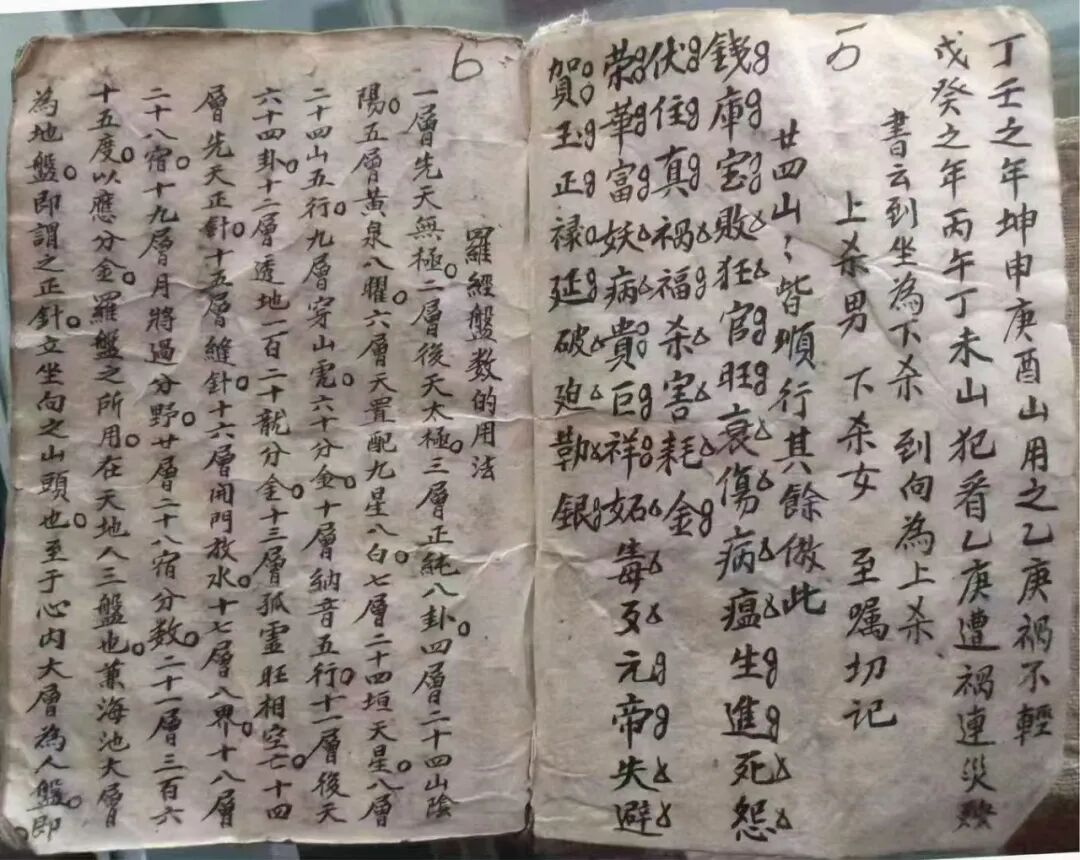 5
丁壬之年坤申庚酉山用之乙庚禍不輕
戊癸之年丙午丁未山犯着乙庚遭禍連災
書云到坐為下杀 到向為上杀
上杀男 下杀女 至嘱切记
廿四山皆順行其餘倣此
錢庫宝敗狂官旺衰傷病瘟生進死怨
伏住真禍福杀害耗金
荣華富妖病貴巨祥妬毒歹元帝失避
賀玉正禄延破廹勒銀
6
羅經盤数的用法
一層先天無極。二層後天太極。三層正純八卦。四層二十四山陰
陽。五層黃泉八曜。六層天罡配九星八白。七層二十四垣天星。八層
二十四山五行。九層穿山虎六十分金。十層納音五行。十一層後天
六十四卦。十二層透地一百二十龍分金。十三層孤虛旺相空亡。十四
層先天正針。十五層縫針。十六層開門放水。十七層八界。十八層
二十八宿。十九層月將過分野。廿層二十八宿分数。二十一層三百六
十五度。以應分金。羅盤之所用。在天地人三盤也。兼海池大層
為地盤。即謂之正針。立坐向之山頭也。至于心內大層為人盤。即